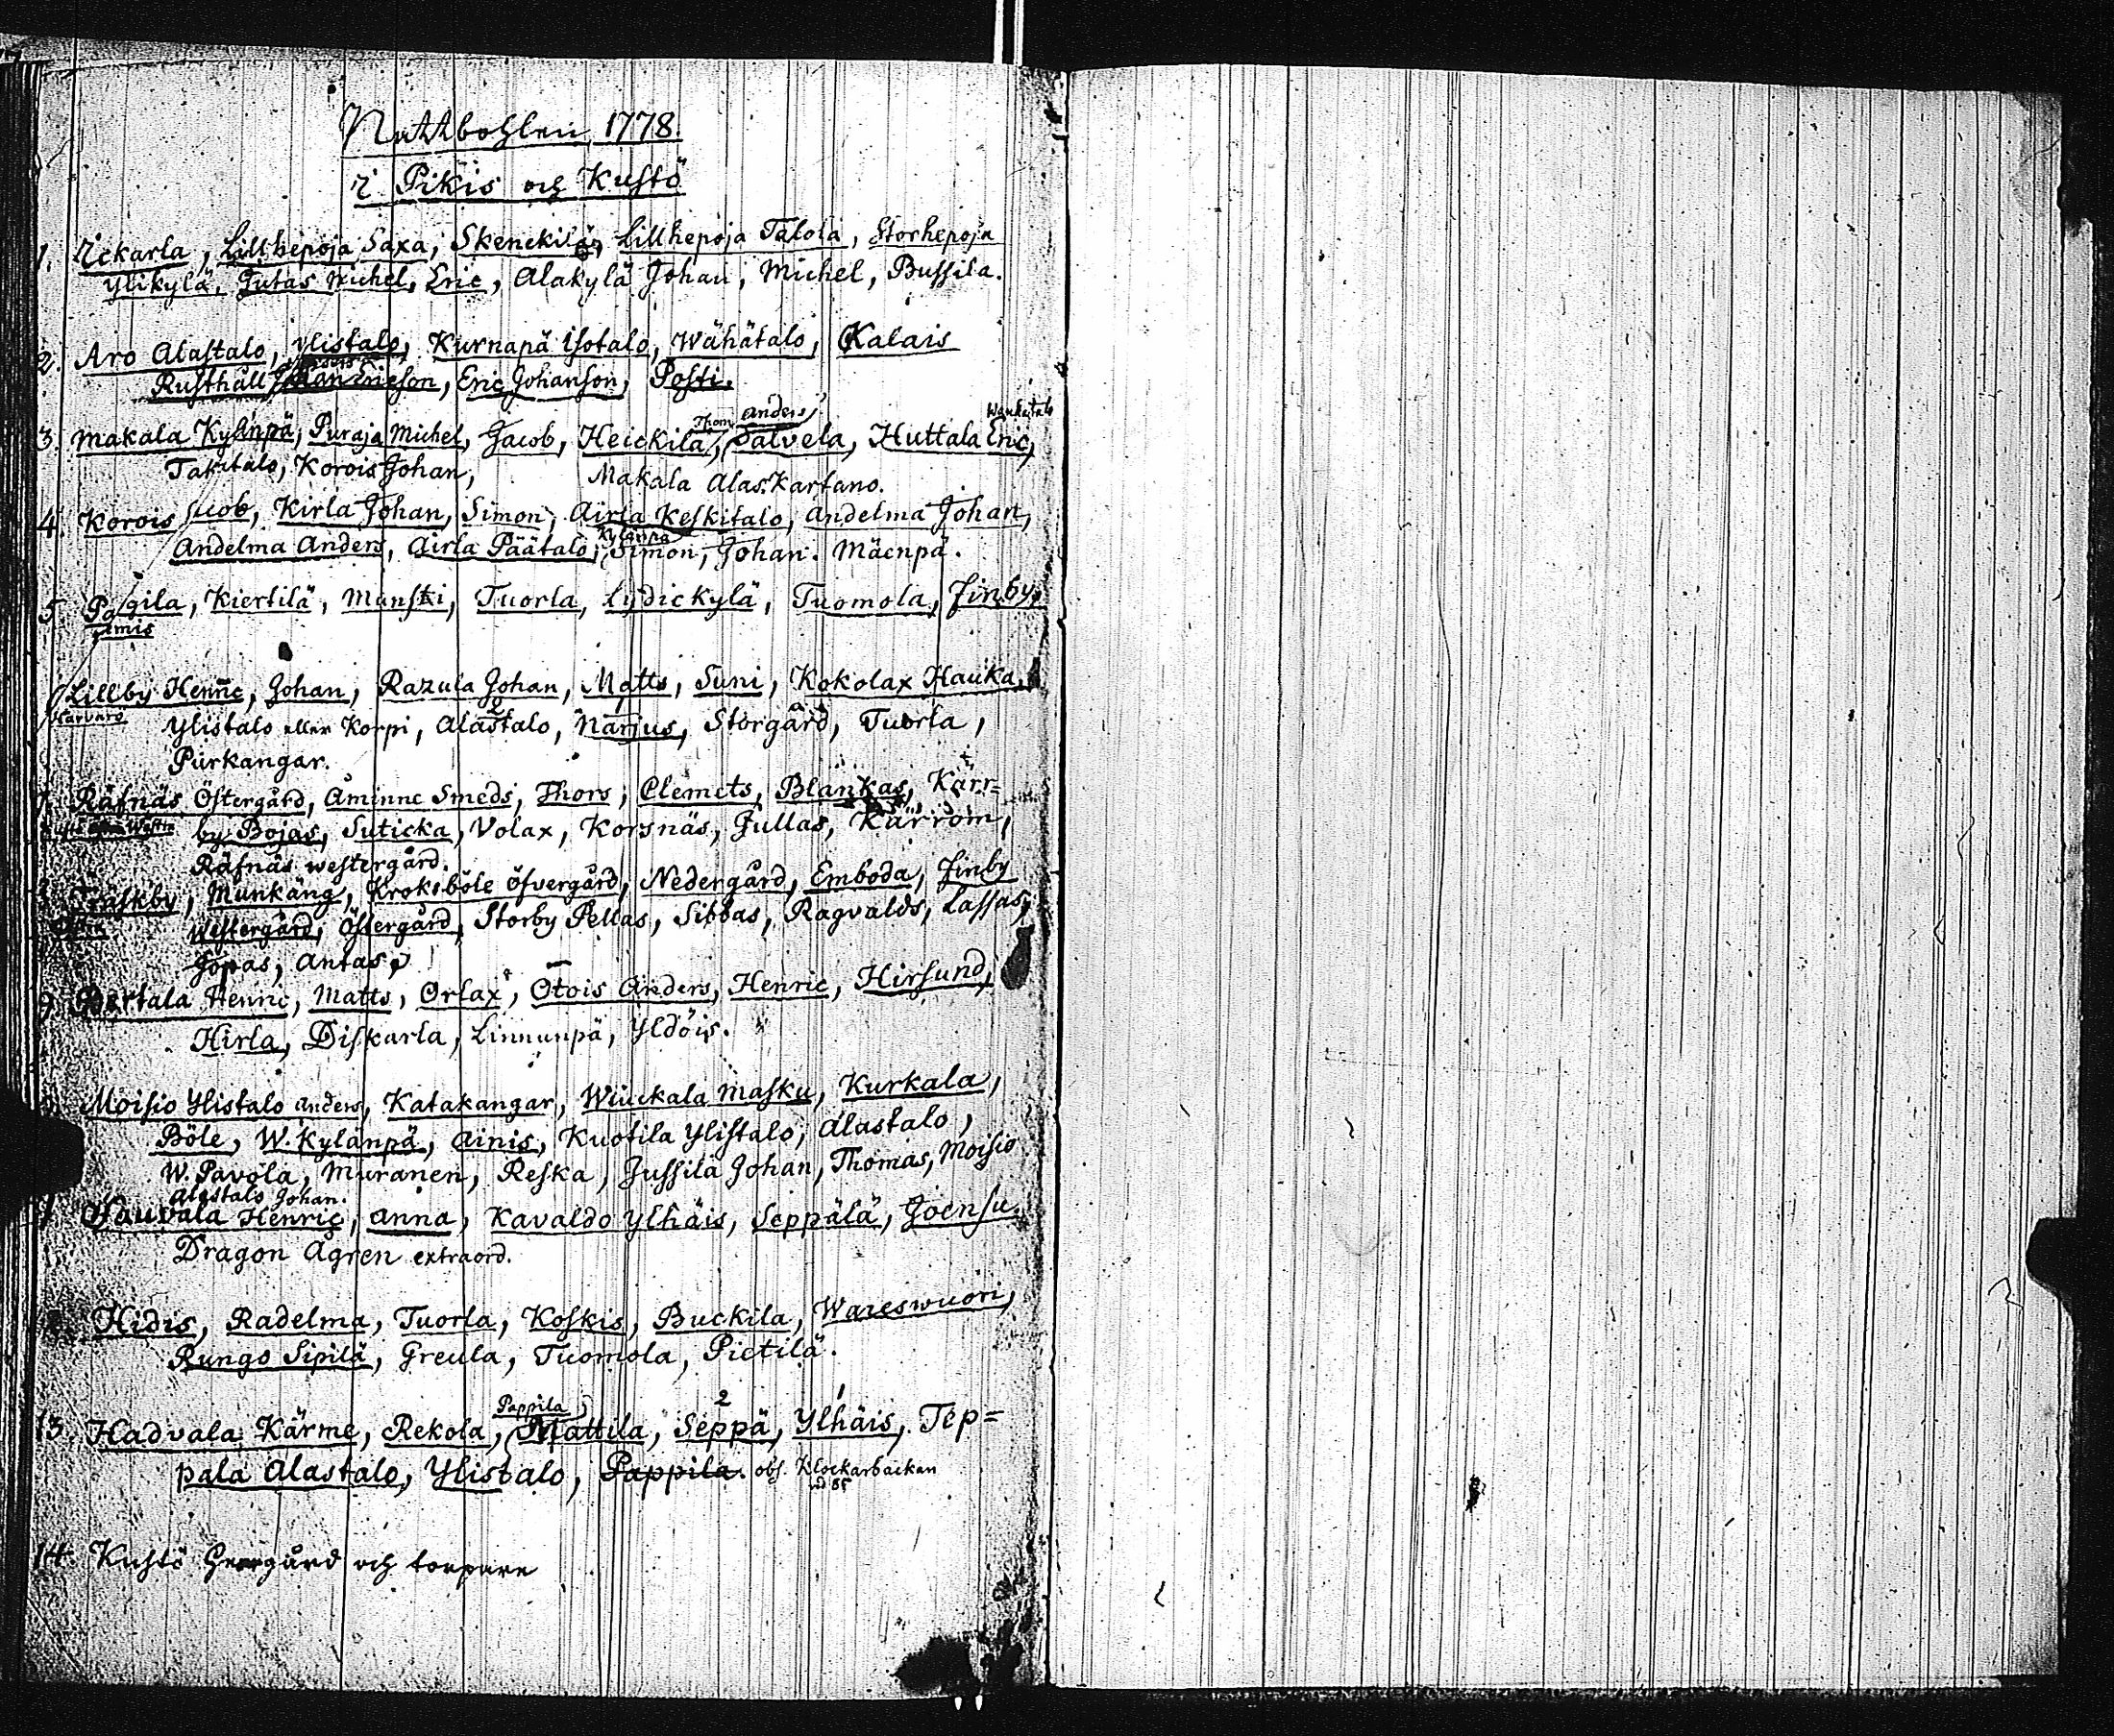 Nattbohlen 1778.
i Pikis och Kustö
1. Ickarla, Lillhepoja Saxa, Skenckilä, Lillhepoja Talola, Storhepoja
Ylikylä, Jutas Michel, Eric, Alakylä Johan, Michel, Bussila.
2. Aro Alastalo, Ylistalo, Kurnapä Isotalo, Wähätalo, Kalais
Rusthåll Johan Ericson, Eric Johanson, Posti.
Thom. Anders,
3. Makala Kylänpä, Puraja Michel, Jacob, Heickilä, Salvela, Huttala Eric,
Takatalo, Korois Johan, Makala Alas.Kartano.
4. Korois Jacob, Kirla Johan, Simon, Airla Keskitalo, Andelma Johan,
Kylänpä
Andelma Anders, Airla Päätalo, Simon, Johan. Mäenpä.
5 Pogila, Kiertilä, Munsti, Tuorla, Lydickylä, Tuomola, Finby,
Lillby Henric, Johan, Razula Johan, Matts, Suni, Kokolax Hauka,
Harvarö
2 1
Ylistalo eller Korpi, Alastalo, Narjus, Storgård, Tuorla,
Purkangar.
7. Räfnäs Östergård, Åminne Smeds, Thors, Clemets, Blankas, Kärr=
by Bojas, Suticka, Volax, Korsnäs, Jullas, Kärrom,
Räfnäs westergård.
8 Träskby, Munkäng, Kroksböle Öfvergård, Nedergård, Emboda, Finby
Westergård, Östergård, Storby Pellas, Sibbas, Ragvalds, Lassas,
Jopas, Antas,
9 Bertala Henric, Matts, Orlax, Otois Anders, Henric, Hirsund,
Hirla, Diskarla, Linnunpä, Yldöis.
Moisio Ylistalo Anders, Katakangar, Wiuckala Masku, Kurkala,
Böle, W. Kylänpä, Ainis, Kuotila Ylistalo, Alastalo,
W. Pavola, Muranen, Reska, Jussila Johan, Thomas, Moisio
Alastalo Johan.
Sauvala Henric, Anna, Kavaldo Ylhäis, Seppälä, Joensu.
Dragon Ågren extraord.
Hidis, Radelma, Tuorla, Koskis, Buckila, Wareswuori,
Rungo Sipilä, Greula, Tuomola, Pietilä.
Pappila, 2 1
13. Hadvala Kärme, Rekola, Mattila, Seppä, Ylhäis, Tep=
pala Alastalo, Ylistalo, Pappila. obs. Klockarbackan
14. Kustö Herrgård och torpare